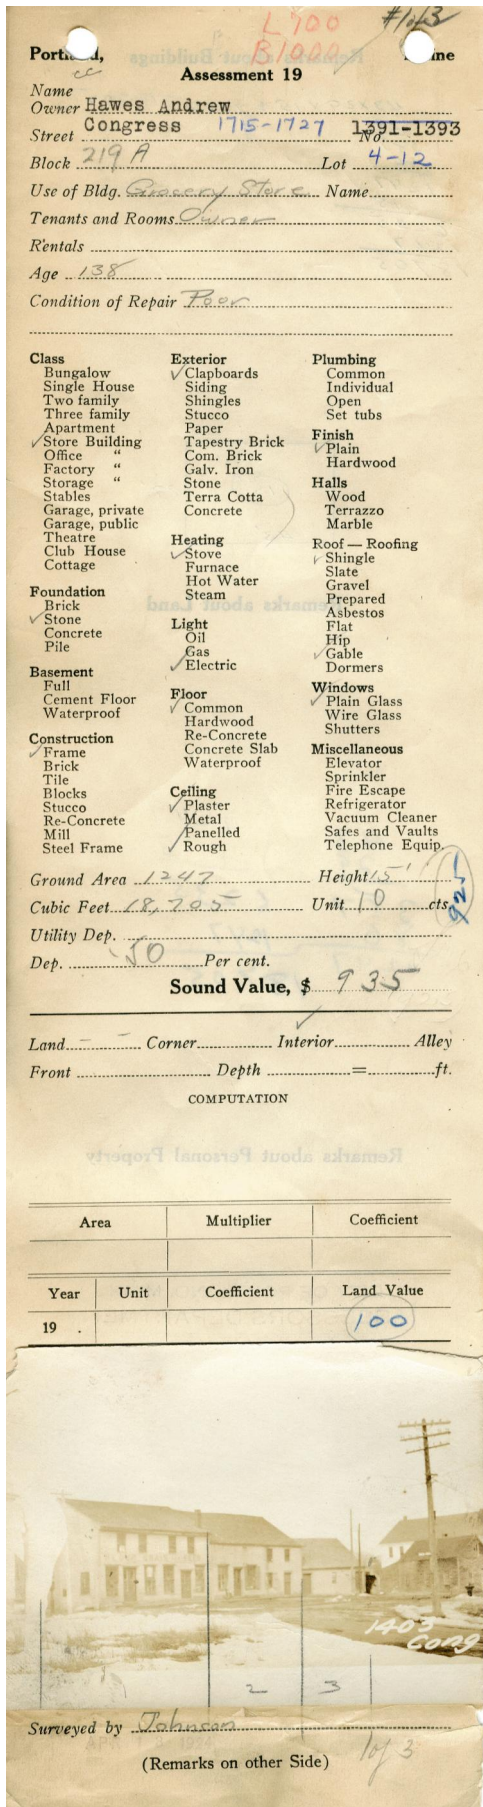 L 700 #1 of 3
B 1000
Portland, Maine
cc
Assessment 19
Name
Owner Hawes Andrew
Street Congress 1715-1727 No. 1391-1393
Block 219 A Lot 4-12
Use of Bldg. Grocery Store Name
Tenants and Rooms Owner
Rentals
Age 138
Condition of Repair Poor
Class
Bungalow
Single House
Two family
Three family
Apartment
✓Store Building
Office "
Factory "
Storage "
Stables
Garage, private
Garage, public
Theatre
Club House
Cottage
Foundation
Brick
✓Stone
Concrete
Pile
Basement
Full
Cement Floor
Waterproof
Construction
✓Frame
Brick
Tile
Blocks
Stucco
Re-Concrete
Mill
Steel Frame
Exterior
✓Clapboards
Siding
Shingles
Stucco
Paper
Tapestry Brick
Com. Brick
Galv. Iron
Stone
Terra Cotta
Concrete
Heating
✓Stove
Furnace
Hot Water
Steam
Light
Oil
Gas
✓Electric
Floor
✓Common
Hardwood
Re-Concrete
Concrete Slab
Waterproof
Ceiling
✓Plaster
Metal
✓Panelled
✓Rough
Plumbing
Common
Individual
Open
Set tubs
Finish
✓Plain
Hardwood
Halls
Wood
Terrazzo
Marble
Roof — Roofing
✓Shingle
Slate
Gravel
Prepared
Asbestos
Flat
Hip
✓Gable
Dormers
Windows
✓Plain Glass
Wire Glass
Shutters
Miscellaneous
Elevator
Sprinkler
Fire Escape
Refrigerator
Vacuum Cleaner
Safes and Vaults
Telephone Equip.
Ground Area 1247 Height 15'
Cubic Feet 18,705 Unit 10 cts.
925
Utility Dep.
Dep. 50 Per cent.
Sound Value, $ 935
Land - - Corner Interior ✓ Alley
Front Depth = ft.
COMPUTATION
Area Multiplier Coefficient
Year Unit Coefficient Land Value
19 . 100
1403
Cong
2 3
Surveyed by Johnson
(Remarks on other Side) 1 of 3